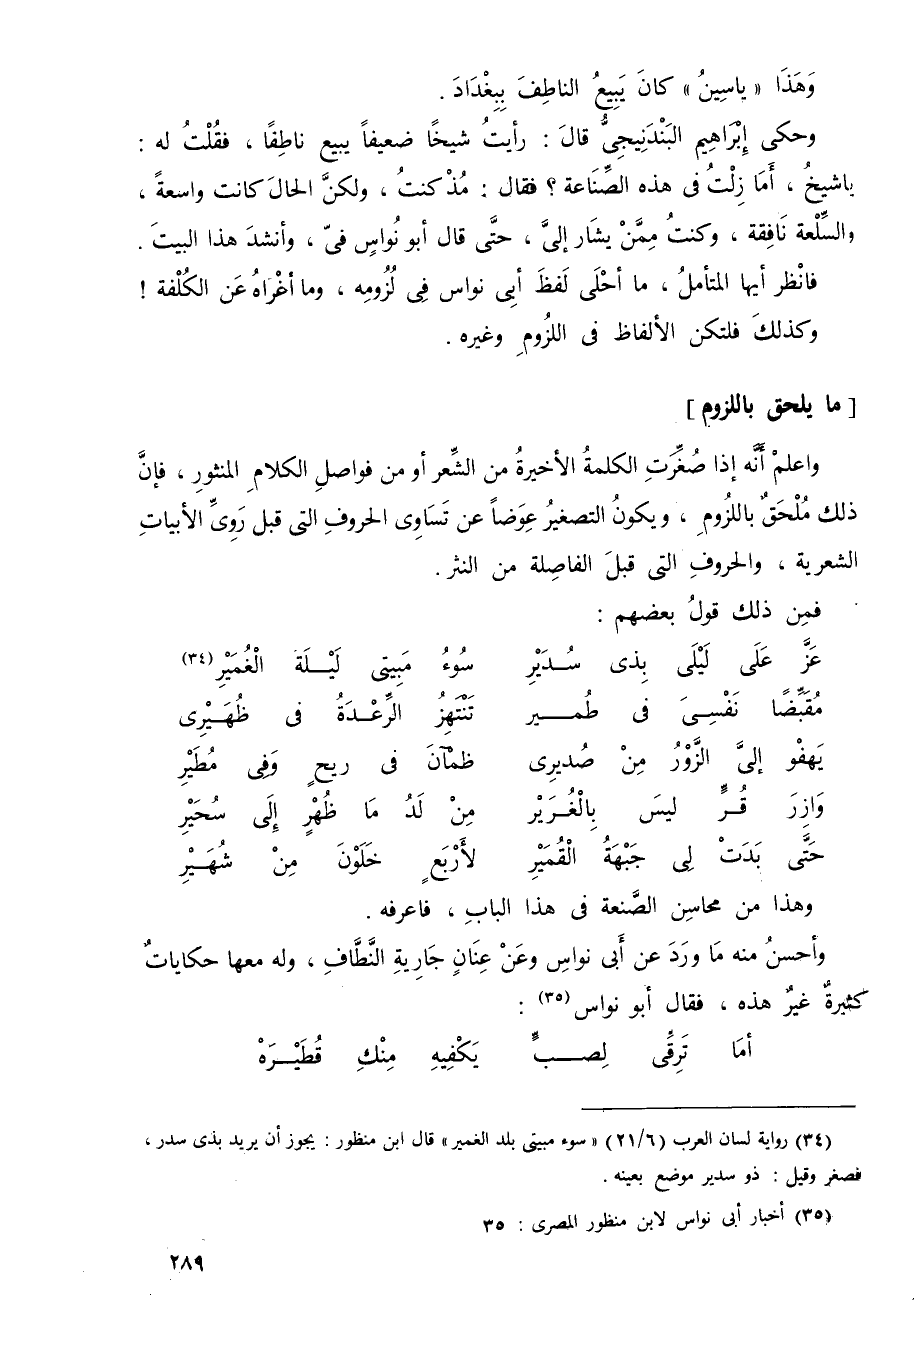 وَهَذَا « ياسِينُ » كانَ يَبِيعُ الناطِفَ بِبَغْدَادَ .
وحكى إبْرَاهِيم البَنْدَنِيجِىُّ قالَ : رأيتُ شيخًا ضعيفاً يبيع ناطِفًا ، فقُلْتُ له :
ياشيخُ ، أَمَا زِلْتُ فى هذه الصِّنَاعة ؟ فقال : مُذْ كنتُ ، ولكنَّ الحالَ كانت واسعةً ،
والسِّلْعة نَافِقة ، وكنتُ مِمَّنْ يشَار إلىَّ ، حتَّى قال أبو نُواسٍ فىّ ، وأنشدَ هذا البيتَ .
فانْظر أيها المتأملُ ، ما أحْلَى لَفظَ أبى نواس فِى لُزُومِه ، وما أغْرَاهُ عَن الكُلْفة !
وكذلكَ فلتكن الألفاظ فى اللزُومِ وغيره .
[ ما يلحق باللزوم ]
واعلمْ أَنَّه إذا صُغِّرَتِ الكلمةُ الأخيرةُ من الشِّعر أو من فواصلِ الكلامِ المنثورِ ، فإنَّ
ذلك مُلْحَقٌ باللزُومِ ، ويكونُ التصغيرُ عِوَضاً عن تَسَاوِى الحروفِ التى قبل رَوِىِّ الأبياتِ
الشعرية ، والحروفِ التى قبلَ الفاصِلة من النثر .
فمِن ذلك قولُ بعضهم :
عَزَّ عَلَى لَيْلَى بِذى سُدَيْرِ سُوءُ مَبِيتى لَيْلَةَ الْغُمَيْرِ (٣٤)
مُقَبِّضًا نَفْسِىَ فى طُمير تَنْتَهِزُ الرِّعْدَةُ فى ظُهَيْرِى
يَهفْو إلىَّ الزَّوْرُ مِنْ صُديرِى ظمْآنَ فى ريحٍ وَفِى مُطَيْرِ
وَازِرَ قُرٍّ ليسَ بِالْغُرَيْرِ مِنْ لَدُ مَا ظُهْرٍ إِلَى سُحَيْرِ
حَتَّى بَدَتْ لِى جَبْهَةُ القُمَيْرِ لأَرْبَعٍ خَلَوْنَ مِنْ شُهَيْرِ
وهذا من محاسِن الصَّنعة فى هذا البابِ ، فاعرفه .
وأحسنُ منه مَا وَرَدَ عن أَبى نواسِ وعَنْ عِنَانٍ جَارِيةِ النَّطَّافِ ، وله معها حكاياتٌ
كثيرةٌ غيرُ هذه ، فقال أبو نواس (٣٥) :
أمَا تَرِقَّى لِصبٍّ يَكْفِيهِ مِنْكِ قُطَيْرَهْ
(٣٤) رواية لسان العرب (٢١/٦) « سوء مبيتى بلد الغمير » قال ابن منظور : يجوز أن يريد بذى سدر ،
فصغر وقيل : ذو سدير موضع بعينه .
(٣٥) أخبار أبى نواس لابن منظور المصرى : ٣٥
٢٨٩